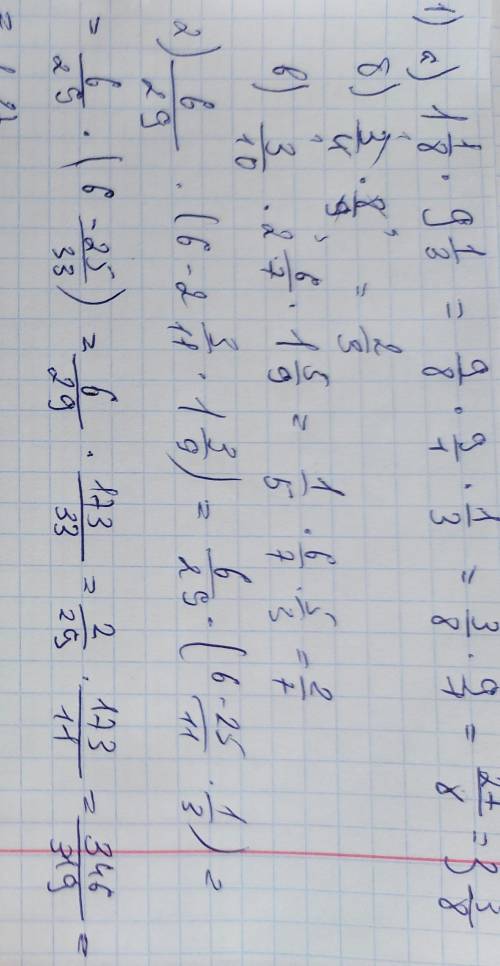 1) а) 1 1/8 · 9 1/3 = 9/8 · 9/1 · 1/3 = 3/8 · 9/1 = 27/8 = 3 3/8
б) 3/4 · 8/9 = 2/3
в) 3/10 · 2 6/7 · 1 5/9 = 1/5 · 6/7 · 5/3 = 2/7
2) 6/29 · (6 - 2 3/11 · 1 3/9) = 6/29 · (6 - 25/11 · 1/3) =
= 6/29 · (6 - 25/33) = 6/29 · 173/33 = 2/29 · 173/11 = 346/319 =